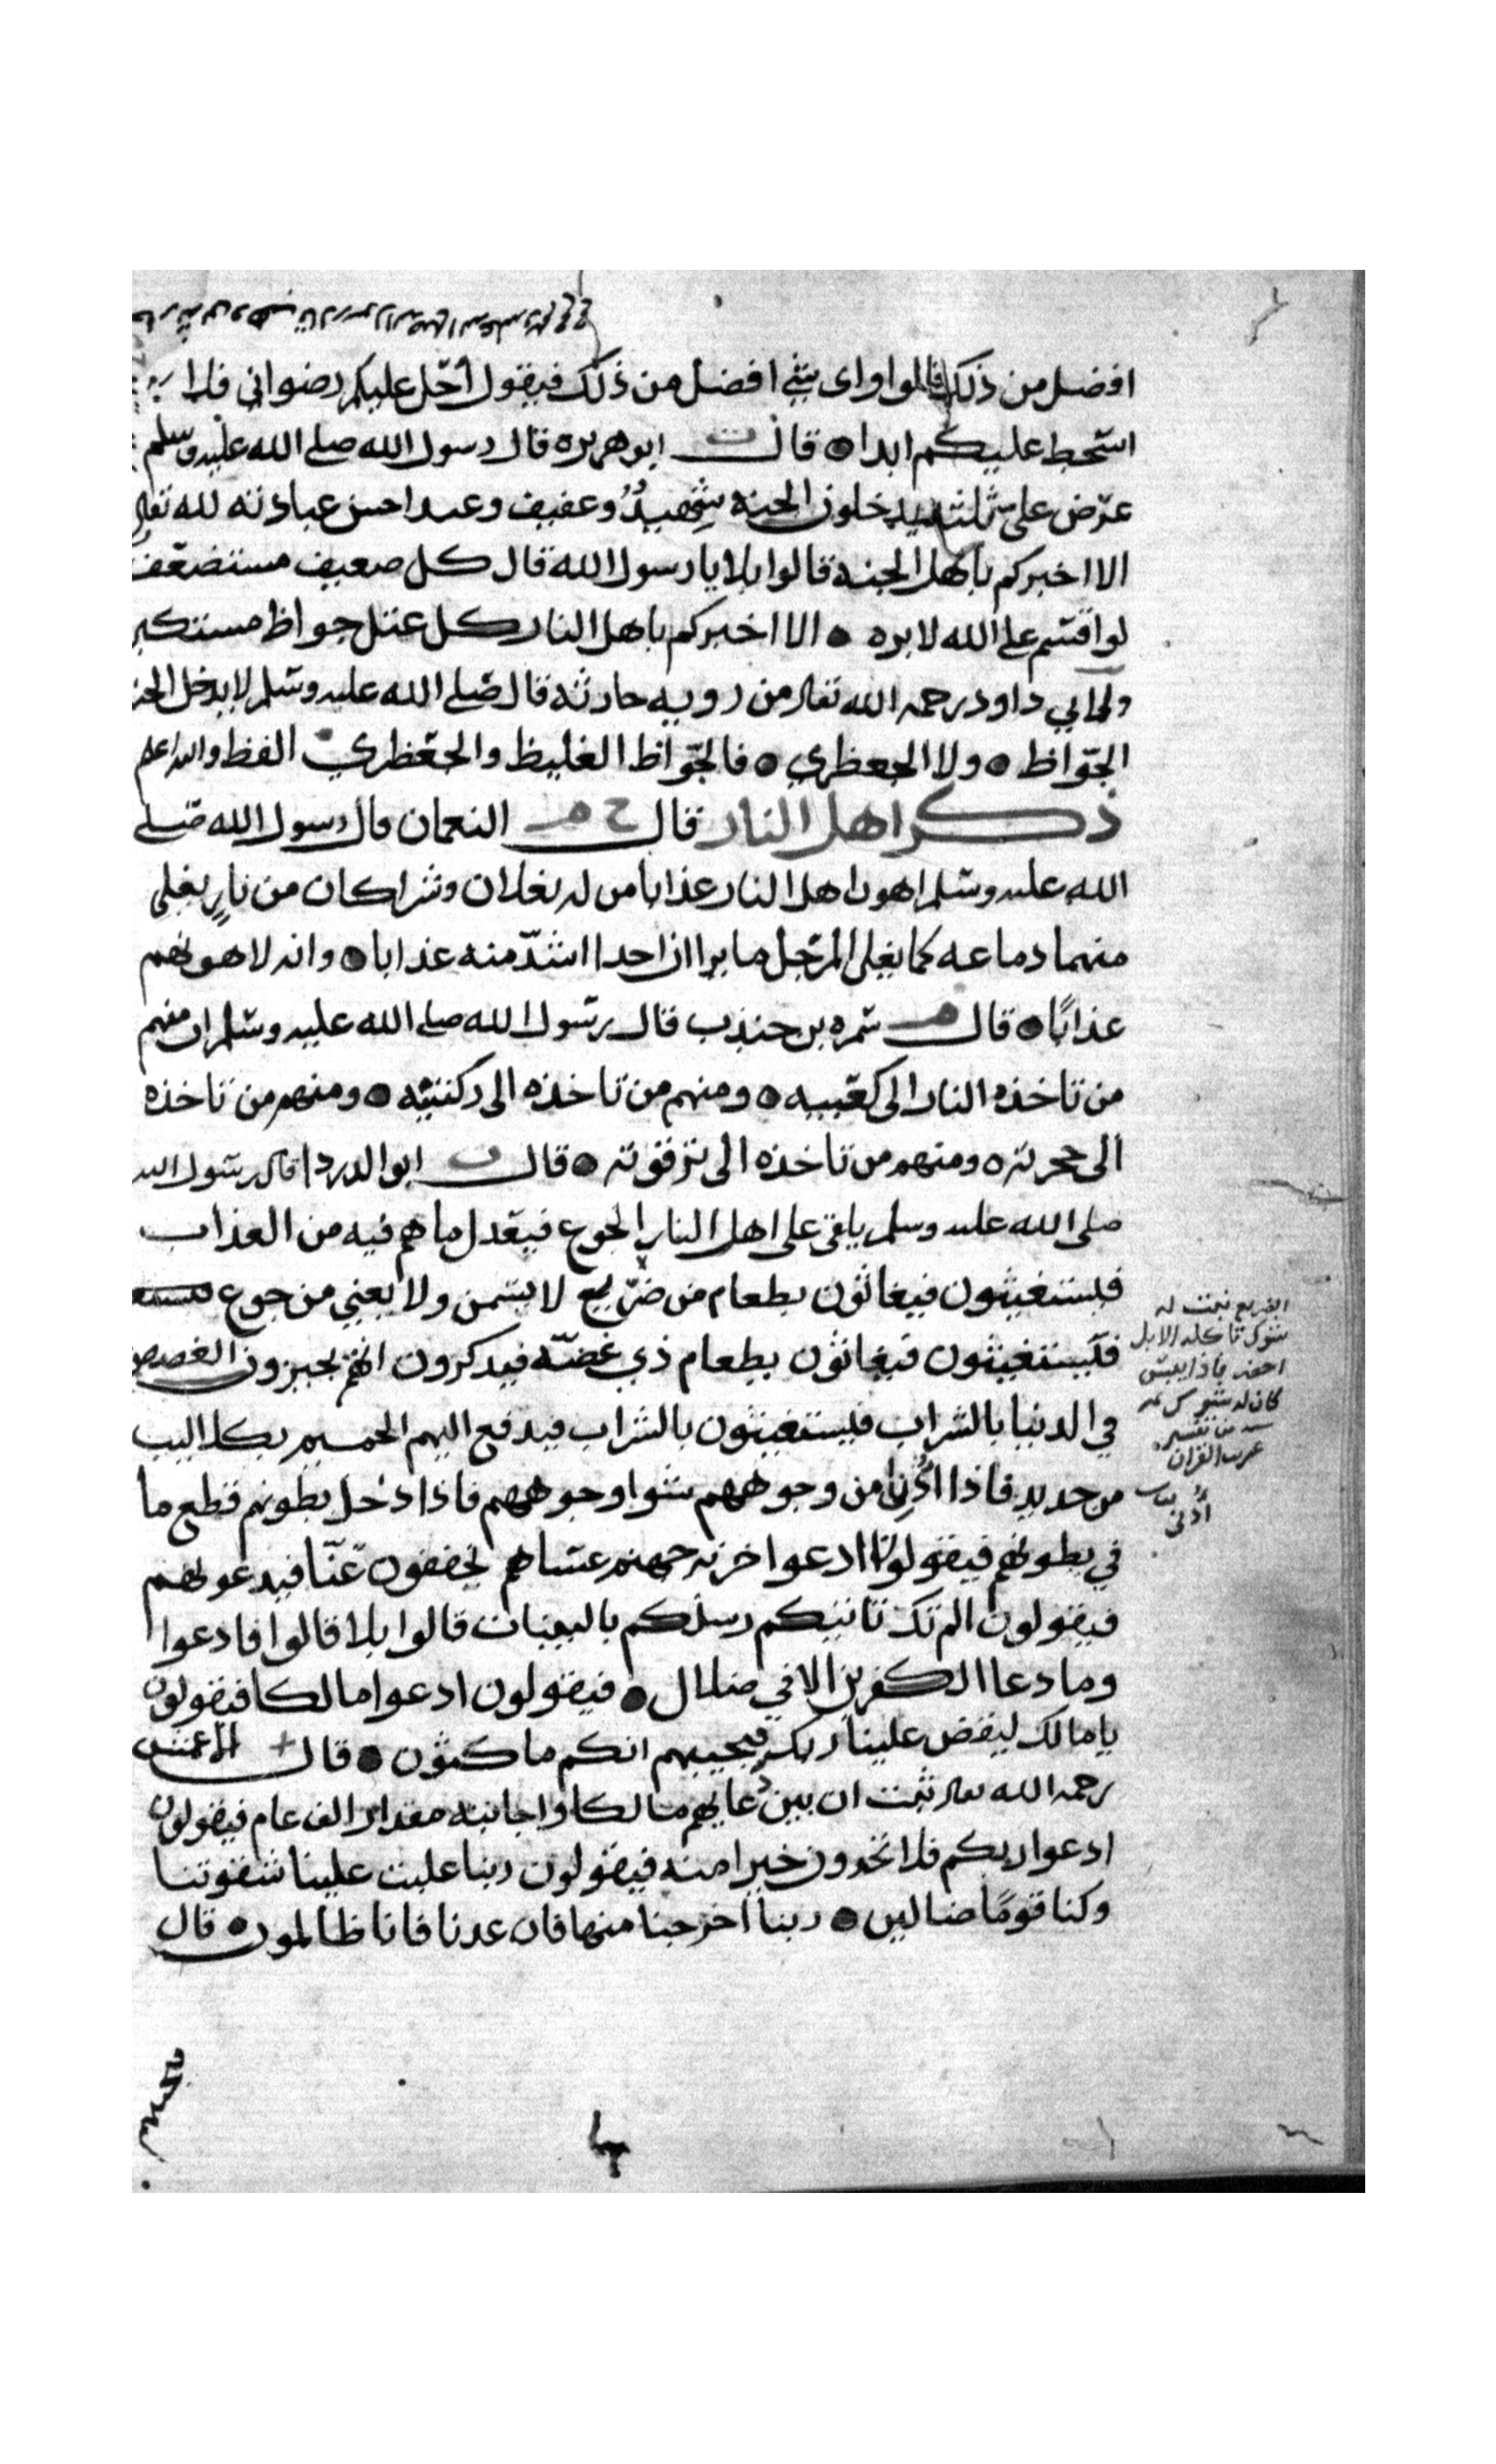 افضل من ذلك قالوا واى شيء افضل من ذلك فيقول أحل عليكم رضواني فلا
اسخط عليكم ابدا ● قال ت ابو هريره قال رسول الله صلى الله عليه وسلم
عرض علي ثلثه يدخلون الجنه شهيد وعفيف وعبد احسن عبادته لله تعالى
الا اخبركم باهل الجنه قالوا بلا يا رسول الله قال كل ضعيف مستضعف
لو اقسم على الله لابره ● الا اخبركم باهل النار كل عتل جواظ مستكبر
ولابي داود رحمه الله تعالى من رويه حارثه قال صلى الله عليه وسلم لا يدخل
الجواظ ● ولا الجعظري ● فالجواظ الغليظ والجعظري الفظ والله اعلم
ذكر اهل النار قال خ م النعمان قال رسول الله صلى
الله عليه وسلم اهون اهل النار عذابا من له نعلان وشراكان من نار يغلي
منهما دماغه كما يغلى المرجل ما يرا ان احدا اشد منه عذابا ● وانه لاهونهم
عذابًا ● قال م سمره بن جندب قال رسول الله صلى الله عليه وسلم ان منهم
من تاخذه النار الى كعبيه ● ومنهم من تاخذه الى ركبتيه ● ومنهم من تاخذه
الى حجزته ● ومنهم من تاخذه الى ترقوته ● قال ت ابو الدردا قال رسول الله
صلى الله عليه وسلم يلقى على اهل النار الجوع فيعدل ما هم فيه من العذاب
فليستغيثون فيغاثون بطعام من ضريع لا يسمن ولا يغني من جوع
فليستغيثون فيغاثون بطعام ذي غصه فيذكرون انهم يجيزون الغصص
في الدنيا بالشراب فليستغيثون بالشراب فيدفع اليهم الحميم بكلاليب
من حديد فاذا أُدني من وجوههم شوا وجوههم فاذا دخل بطونهم قطع ما
في بطونهم فيقولون ادعوا خزنه جهنم عساهم يخففون عنا فيدعونهم
فيقولون الم تك تاتيكم رسلكم بالبينات قالوا بلا قالوا فادعوا
وما دعا الكفرين الا في ضلال ● فيقولون ادعوا مالكا فيقولون
يا مالك ليقض علينا ربك فيجيبهم انكم ماكثون ● قال الاعمش
رحمه الله تعالى نبئت ان بين دعايهم مالكا واجابته مقدار الف عام فيقولون
ادعوا ربكم فلا تجدون خيرا منه فيقولون ربنا غلبت علينا شقوتنا
وكنا قومًا ضالين ● ربنا اخرجنا منها فان عدنا فانا ظالمون ● قال
الضريع نبت له
شوك تاكله الابل
اخضر فاذا يبس
من تفسير
غريب القران
أُدني